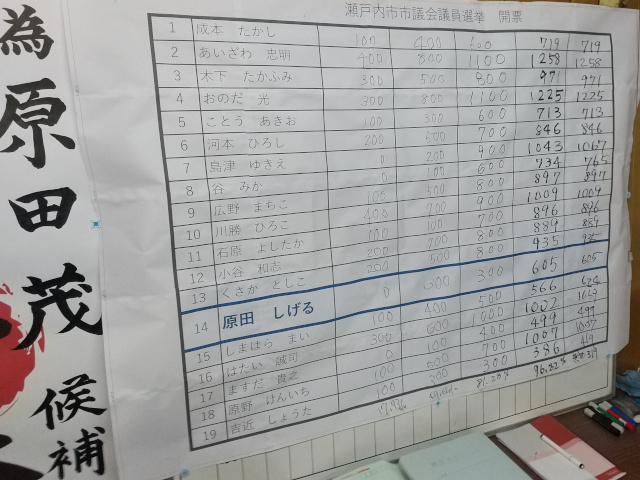 瀬戸内市市議会議員選挙 開票
為 原田茂 候補
1 成本 たかし 100 400 600 719 719
2 あいざわ 忠明 400 800 1100 1258 1258
3 木下 たかふみ 300 500 800 971 971
4 おのだ 光 300 800 1100 1225 1225
5 ことう あきお 100 300 600 713 713
6 河本 ひろし 200 700 846 846
7 島津 ゆきえ 0 900 1043 1067
8 谷 みか 600 734 765
9 広野 まちこ 100 800 897 897
10 川勝 ひろこ 400 700 900 1009 1009
11 石原 よしたか 100 700 896 896
12 小谷 和志 200 700 800 889 889
13 くさか としこ 200 500 800 935 935
14 原田 しげる 0 300 605 605
15 しまはら まい 100 400 500 566 624
16 はたい 誠司 300 600 1000 1002
17 ますだ 貴之 0 100 400 499 499
18 原野 けんいち 100 700 1007 1007
19 吉近 しょうた 100 300 300 386 419
96.82%